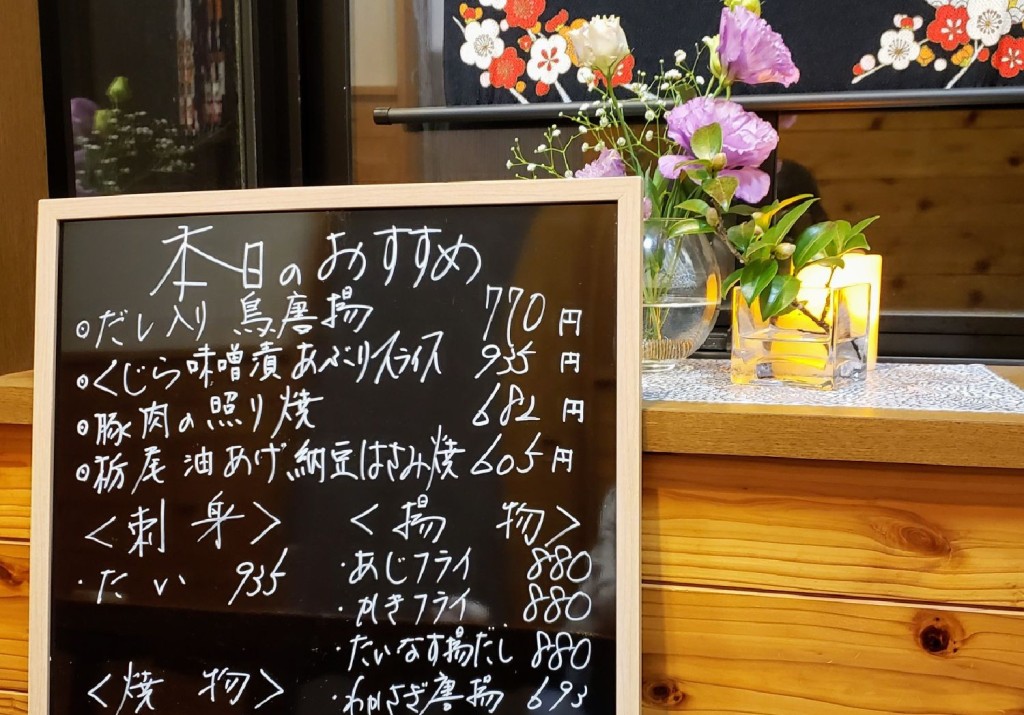 本日のおすすめ
◎だし入り鳥唐揚 770円
◎くじら味噌漬あぶりスライス 935円
◎豚肉の照り焼 682円
◎栃尾油あげ納豆はさみ焼 605円
<刺身>
・たい 935
<焼物>
<揚物>
・あじフライ 880
・かきフライ 880
・たいなす揚だし 880
・わかさぎ唐揚 693